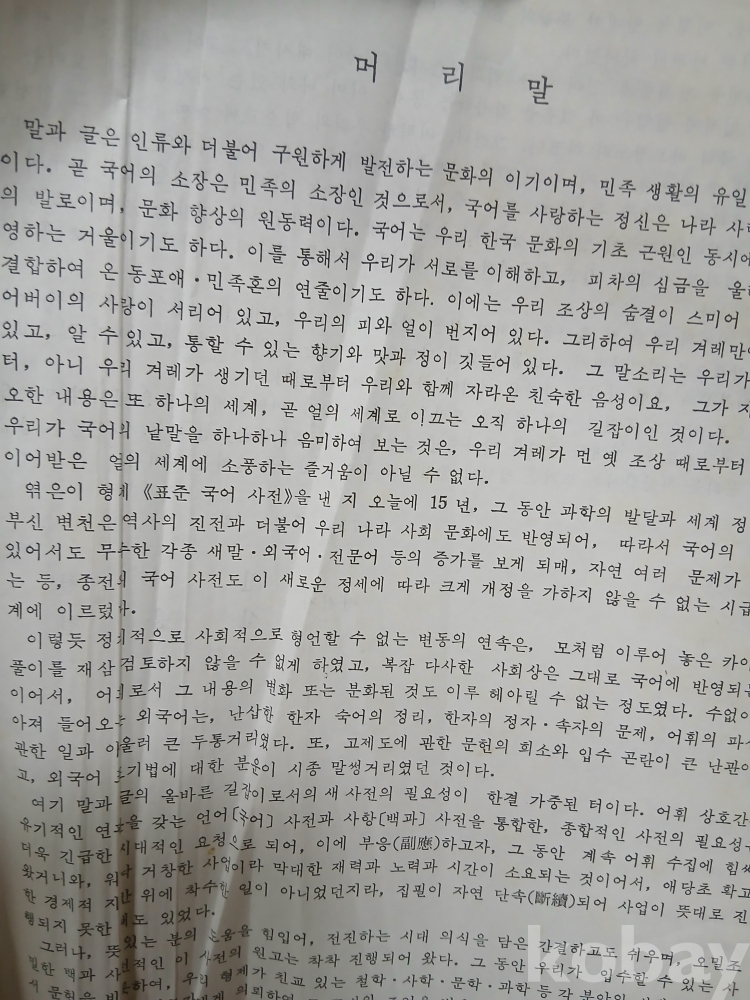 머 리 말
말과 글은 인류와 더불어 구원하게 발전하는 문화의 이기이며, 민족 생활의 유일
이다. 곧 국어의 소장은 민족의 소장인 것으로서, 국어를 사랑하는 정신은 나라
의 발로이며, 문화 향상의 원동력이다. 국어는 우리 한국 문화의 기초 근원인 동시에
영하는 거울이기도 하다. 이를 통해서 우리가 서로를 이해하고, 피차의 심금을
결합하여 온 동포애·민족혼의 연줄이기도 하다. 이에는 우리 조상의 숨결이 스미어
어버이의 사랑이 서리어 있고, 우리의 피와 얼이 번지어 있다. 그리하여 우리
있고, 알 수 있고, 통할 수 있는 향기와 맛과 정이 깃들어 있다. 그 말소리는 우리가
터, 아니 우리 겨레가 생기던 때로부터 우리와 함께 자라온 친숙한 음성이요, 그가
오한 내용은 또 하나의 세계, 곧 얼의 세계로 이끄는 오직 하나의 길잡이인 것이다.
우리가 국어의 낱말을 하나하나 음미하여 보는 것은, 우리 겨레가 먼 옛 조상 때로부터
이어받은 얼의 세계에 소풍하는 즐거움이 아닐 수 없다.
엮은이 형제 《표준 국어 사전》을 낸 지 오늘에 15 년, 그 동안 과학의 발달과 세계
부신 변천은 역사의 진전과 더불어 우리 나라 사회 문화에도 반영되어, 따라서 국어의
있어서도 무수한 각종 새말·외국어·전문어 등의 증가를 보게 되매, 자연 여러 문제가
는 등, 종전의 국어 사전도 이 새로운 정세에 따라 크게 개정을 가하지 않을 수 없는 시급
계에 이르렀다.
이렇듯 정치적으로 사회적으로 형언할 수 없는 변동의 연속은, 모처럼 이루어 놓은
풀이를 재삼 검토하지 않을 수 없게 하였고, 복잡 다사한 사회상은 그대로 국어에 반영되
이어서, 어의로서 그 내용의 변화 또는 분화된 것도 이루 헤아릴 수 없는 정도였다. 수없이
아져 들어오는 외국어는, 난삽한 한자 숙어의 정리, 한자의 정자·속자의 문제, 어휘의
관한 일과 아울러 큰 두통거리였다. 또, 고제도에 관한 문헌의 희소와 입수 곤란이 큰 난관
고, 외국어 표기법에 대한 분운이 시종 말썽거리였던 것이다.
여기 말과 글의 올바른 길잡이로서의 새 사전의 필요성이 한결 가중된 터이다. 어휘 상호간
유기적인 연관을 갖는 언어[국어] 사전과 사항[백과] 사전을 통합한, 종합적인 사전의 필요성
더욱 긴급한 시대적인 요청으로 되어, 이에 부응(副應)하고자, 그 동안 계속 어휘 수집에 힘써
왔거니와, 워낙 거창한 사업이라 막대한 재력과 노력과 시간이 소요되는 것이어서, 애당초 확고
한 경제적 지반 위에 착수한 일이 아니었던지라, 집필이 자연 단속(斷續)되어 사업이 뜻대로 진
행되지 못한 때도 있었다.
그러나, 뜻있는 분의 도움을 힘입어, 전진하는 시대 의식을 담은 간결하고도 쉬우며,
밀한 백과 사전적인 이 사전의 원고는 착착 진행되어 왔다. 그 동안 우리가 입수할 수 있는 사
서 문헌을 우리 형제가 친교 있는 철학·사학·문학·과학 등 각 분야의
kobay